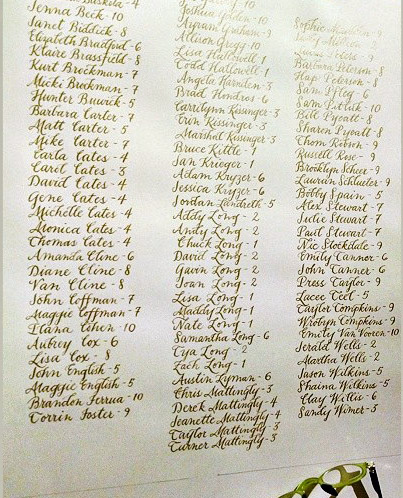 Jenna Beck - 10
Janet Biddick - 8
Elizabeth Bradford - 6
Klaire Brassfield - 8
Kurt Brockman - 7
Micki Brockman - 7
Hunter Buwick - 5
Barbara Carter - 7
Matt Carter - 5
Mike Carter - 7
Carla Cates - 4
Carol Cates - 3
David Cates - 4
Gene Cates - 4
Michelle Cates - 4
Monica Cates - 4
Thomas Cates - 4
Amanda Cline - 6
Diane Cline - 8
Van Cline - 8
John Coffman - 7
Maggie Coffman - 7
Ilana Cohen - 10
Aubrey Cox - 6
Lisa Cox - 8
John English - 5
Maggie English - 5
Brandon Ferrua - 10
Corrin Foster - 9
Joshua Golden - 10
Graham - 9
Allison Gregg - 10
Lisa Hallowell - 1
Todd Hallowell - 1
Angela Harnden - 3
Brad Hondros - 6
Carrilynn Kissinger - 3
Erin Kissinger - 3
Marshal Kissinger - 3
Bruce Kittle - 7
Jan Krieger - 1
Adam Kryger - 6
Jessica Kryger - 6
Jordan Landreth - 5
Addy Long - 2
Andy Long - 2
Chuck Long - 1
David Long - 2
Gavin Long - 2
Joan Long - 2
Lisa Long - 1
Maddy Long - 1
Nate Long - 1
Samantha Long - 6
Tya Long - 2
Zach Long - 1
Austin Lyman - 6
Chris Mattingly - 3
Derek Mattingly - 4
Jeanette Mattingly - 4
Taylor Mattingly - 3
Turner Mattingly - 3
Sophie - 9
Barbara Peterson - 8
Hap Peterson - 8
Sam Pfleg - 6
Sam Pollak - 10
Bill Pyeatt - 8
Sharen Pyeatt - 8
Thom Robson - 9
Russell Rose - 9
Brooklyn Scheer - 9
Laurain Schlueter - 9
Bobby Spain - 5
Alex Stewart - 7
Julie Stewart - 7
Paul Stewart - 7
Nic Stockdale - 9
Emily Tannor - 6
John Tanner - 6
Press Taylor - 9
Lacee Teel - 5
Taylor Tompkins - 9
Wrobyn Tompkins - 9
Emily Van Vooren - 10
Jerald Wells - 2
Martha Wells - 2
Jason Wilkins - 5
Shaina Wilkins - 5
Clay Willis - 6
Sandy Wimer - 5